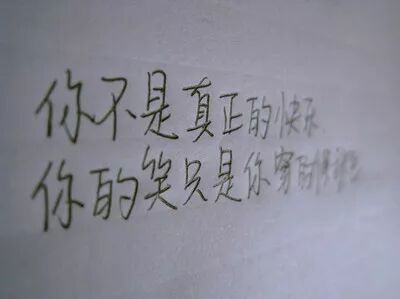 你不是真正的快乐
你的笑只是你穿的